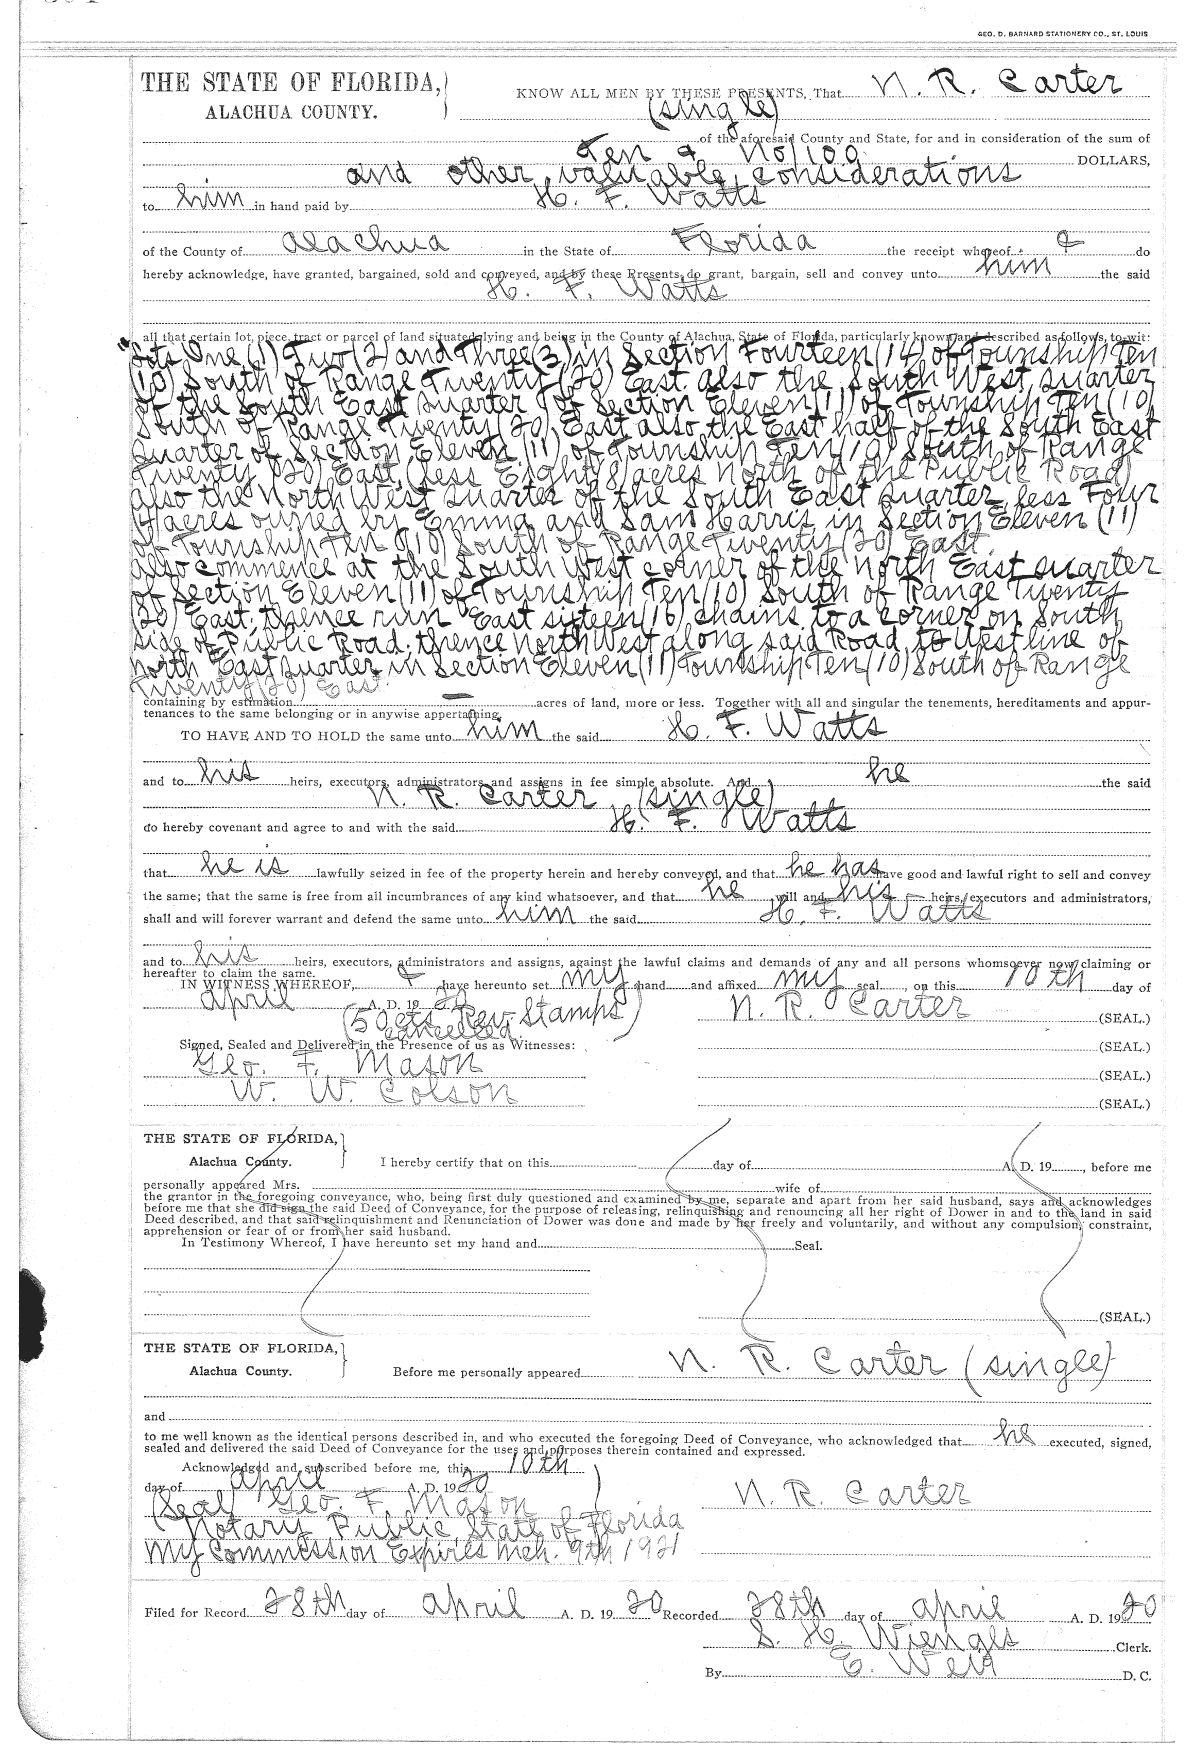 GEO. D. BARNARD STATIONERY CO., ST. LOUIS
THE STATE OF FLORIDA, KNOW ALL MEN BY THESE PRESENTS, That N. R. Carter
ALACHUA COUNTY. (single)
of the aforesaid County and State, for and in consideration of the sum of
Ten & No/100 DOLLARS,
and other valuable considerations
to him in hand paid by H. F. Watts
of the County of Alachua in the State of Florida the receipt whereof I do
hereby acknowledge, have granted, bargained, sold and conveyed, and by these Presents do grant, bargain, sell and convey unto him the said
H. F. Watts
all that certain lot, piece, tract or parcel of land situated lying and being in the County of Alachua, State of Florida, particularly known and described as follows, to-wit:
Lots One (1) Two (2) and Three (3) in Section Fourteen (14) of Township Ten
(10) South of Range Twenty (20) East also the South West quarter
of the South East quarter of Section Eleven (11) of Township Ten (10)
South of Range Twenty (20) East also the East half of the South East
quarter of Section Eleven (11) of Township Ten (10) South of Range
Twenty (20) East, (less Eight (8) acres North of the Public Road)
also the North West quarter of the South East quarter, less Four
(4) acres owned by Emma and Sam Harris in Section Eleven (11)
of Township Ten (10) South of Range Twenty (20) East.
also commence at the South West corner of the North East quarter
of Section Eleven (11) of Township Ten (10) South of Range Twenty
(20) East; thence run East sixteen (16) chains to a corner on South
side of Public Road; thence North West along said Road to West line of
North East quarter in Section Eleven (11) Township Ten (10) South of Range
Twenty (20) East.
containing by estimation — acres of land, more or less. Together with all and singular the tenements, hereditaments and appur-
tenances to the same belonging or in anywise appertaining.
TO HAVE AND TO HOLD the same unto him the said H. F. Watts
and to his heirs, executors, administrators and assigns in fee simple absolute. And he the said
N. R. Carter (single)
do hereby covenant and agree to and with the said H. F. Watts
that he is lawfully seized in fee of the property herein and hereby conveyed, and that he has have good and lawful right to sell and convey
the same; that the same is free from all incumbrances of any kind whatsoever, and that he will and his heirs, executors and administrators,
shall and will forever warrant and defend the same unto him the said H. F. Watts
and to his heirs, executors, administrators and assigns, against the lawful claims and demands of any and all persons whomsoever now claiming or
hereafter to claim the same.
IN WITNESS WHEREOF, I have hereunto set my hand and affixed my seal, on this 10th day of
April A. D. 19 20 N. R. Carter (SEAL.)
(50 cts Rev. Stamps)
cancelled
Signed, Sealed and Delivered in the Presence of us as Witnesses: (SEAL.)
Geo. F. Mason (SEAL.)
W. W. Colson (SEAL.)
THE STATE OF FLORIDA,
Alachua County. I hereby certify that on this day of A. D. 19 , before me
personally appeared Mrs. wife of
the grantor in the foregoing conveyance, who, being first duly questioned and examined by me, separate and apart from her said husband, says and acknowledges
before me that she did sign the said Deed of Conveyance, for the purpose of releasing, relinquishing and renouncing all her right of Dower in and to the land in said
Deed described, and that said relinquishment and Renunciation of Dower was done and made by her freely and voluntarily, and without any compulsion, constraint,
apprehension or fear of or from her said husband.
In Testimony Whereof, I have hereunto set my hand and Seal.
(SEAL.)
THE STATE OF FLORIDA,
Alachua County. Before me personally appeared N. R. Carter (single)
and
to me well known as the identical persons described in, and who executed the foregoing Deed of Conveyance, who acknowledged that he executed, signed,
sealed and delivered the said Deed of Conveyance for the uses and purposes therein contained and expressed.
Acknowledged and subscribed before me, this 10th
day of April A. D. 19 20 N. R. Carter
(Seal) Geo. F. Mason
Notary Public State of Florida
My Commission Expires Mch. 9th 1921
Filed for Record 28th day of April A. D. 19 20 Recorded 28th day of April A. D. 19 20
S. H. Wienges Clerk.
By E. Weir D. C.